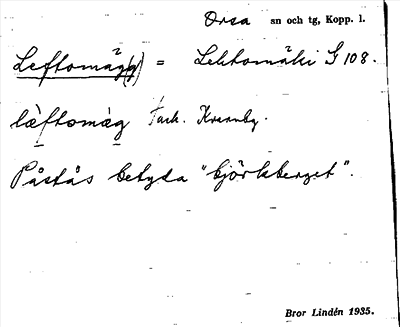 Orsa sn och tg, Kopp. l.
Leftomäg(g) = Lehtomäki S 108.
lèftomàg Jack. Kvarnby.
Påstås betyda "björkberget".
Bror Lindén 1935.